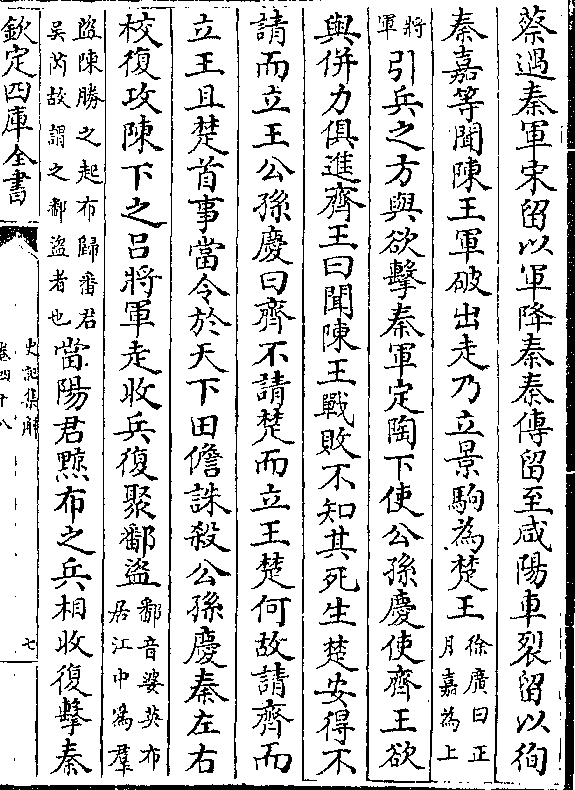 蔡遇秦軍宋留以軍降秦秦傳留至咸陽車裂留以徇
秦嘉等聞陳王軍破出走乃立景駒為楚王徐廣曰正月嘉為上
將軍引兵之方與欲擊秦軍定陶下使公孫慶使齊王欲
與併力俱進齊王曰聞陳王戰敗不知其死生楚安得不
請而立王公孫慶曰齊不請楚而立王楚何故請齊而
立王且楚首事當令於天下田儋誅殺公孫慶秦左右
校復攻陳下之呂將軍走收兵復聚鄱盜鄱音婆英布居江中為羣
盜陳勝之起布歸番君吳芮故謂之鄱盜者也當陽君黥布之兵相收復擊秦
欽定四庫全書
史記集解
卷四十八
七